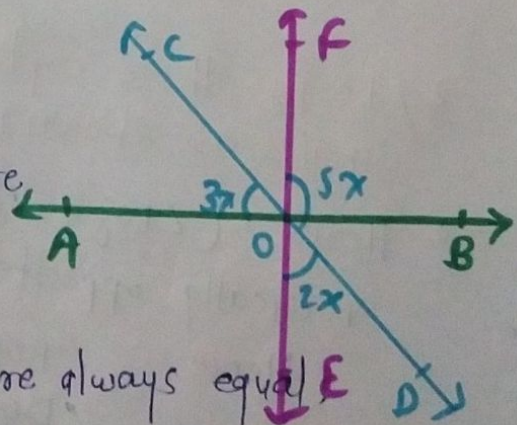 C F
e 3x 5x
A O B
2x
re always equal E
D